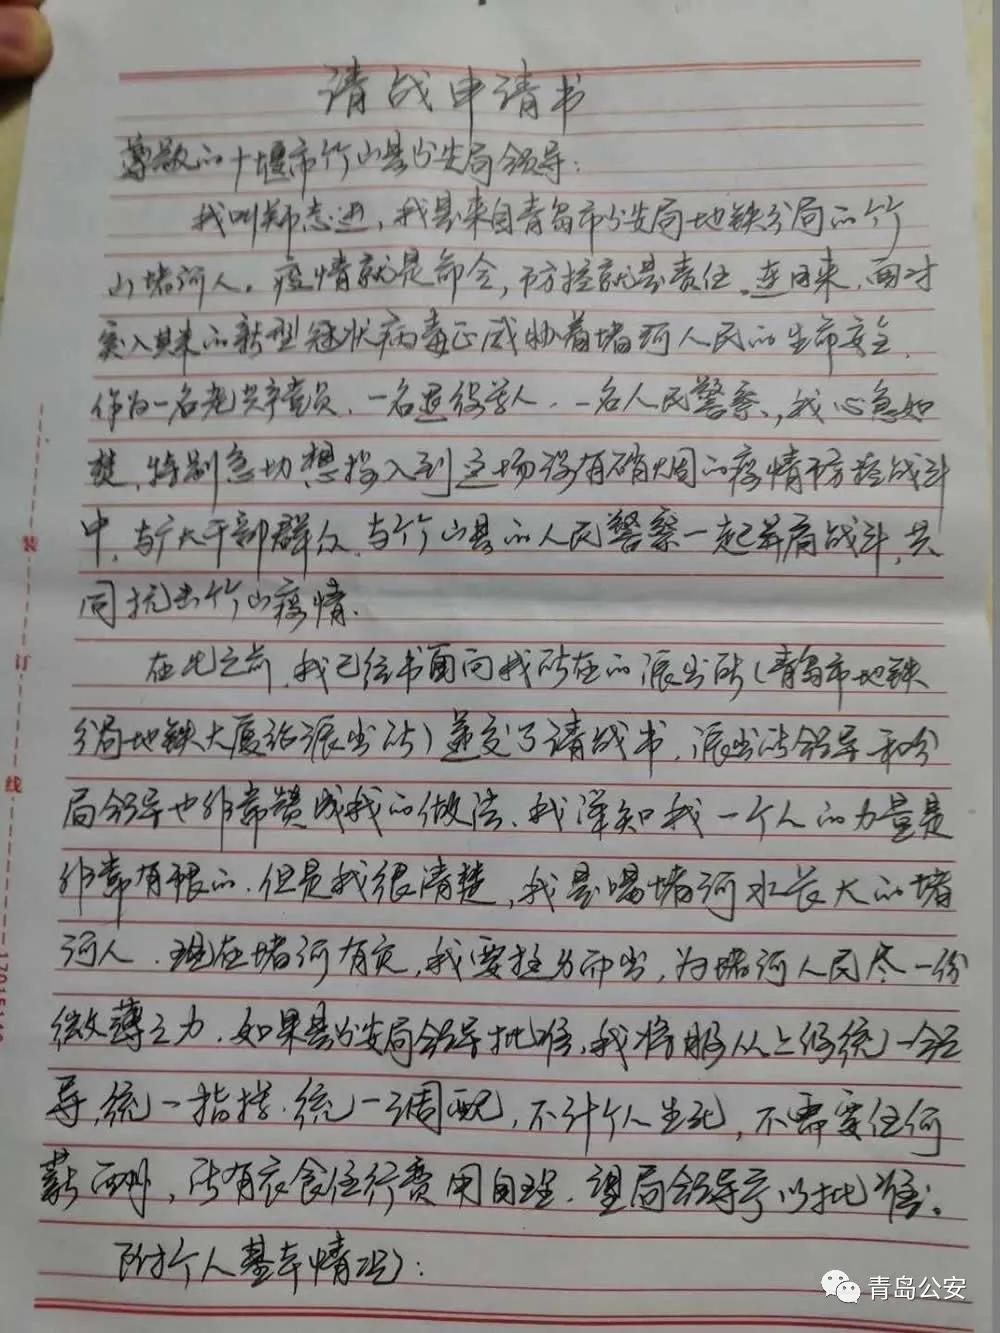 请战申请书
尊敬的十堰市竹山县公安局领导：
我叫郑志进，我是来自青岛市公安局地铁分局的竹
山堵河人。疫情就是命令，防控就是责任。连日来，面对
突入其来的新型冠状病毒正威胁着堵河人民的生命安全，
作为一名老共产党员、一名退役军人、一名人民警察，我心急如
楚，特别急切想投入到这场没有硝烟的疫情防控战斗
中，与广大干部群众、与竹山县的人民警察一起并肩战斗，共
同抗击竹山疫情。
在此之前，我已经书面向我所在的派出所（青岛市地铁
分局地铁大厦站派出所）递交了请战书，派出所领导和分
局领导也非常赞成我的做法，我深知我一个人的力量是
非常有限的，但是我很清楚，我是喝堵河水长大的堵
河人，现在堵河有灾，我要挺身而出，为堵河人民尽一份
微薄之力，如果县公安局领导批准，我将服从上级统一领
导、统一指挥、统一调配，不计个人生死，不需要任何
薪酬，所有衣食住行费用自理，望局领导予以批准。
附个人基本情况：
装
订
线
青岛公安